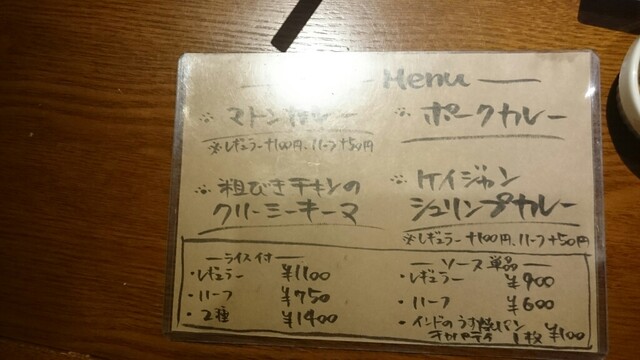 Menu
マトンカレー
※レギュラー+100円、ハーフ+50円
ポークカレー
粗びきチキンの
クリーミーキーマ
ケイジャン
シュリンプカレー
※レギュラー+100円、ハーフ+50円
ライス付
・レギュラー ¥1100
・ハーフ ¥750
・2種 ¥1400
ソース単品
・レギュラー ¥900
・ハーフ ¥600
・インドのうす焼パン
チャパティ 1枚 ¥100